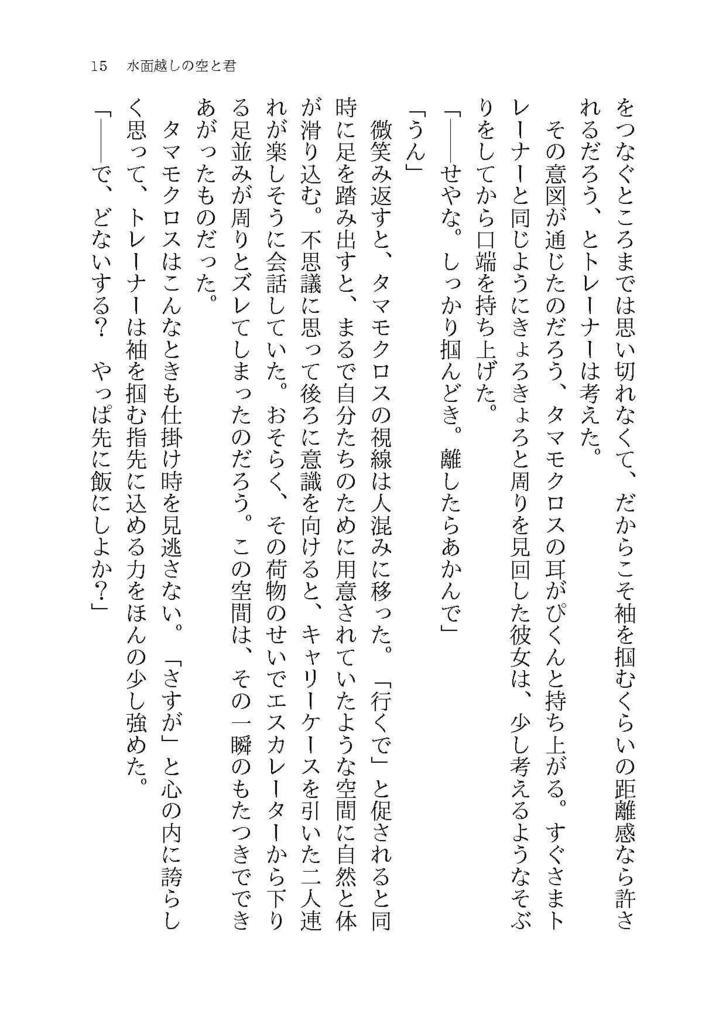 15　水面越しの空と君
をつなぐところまでは思い切れなくて、だからこそ袖を掴むくらいの距離感なら許さ
れるだろう、とトレーナーは考えた。
　その意図が通じたのだろう、タマモクロスの耳がぴくんと持ち上がる。すぐさまト
レーナーと同じようにきょろきょろと周りを見回した彼女は、少し考えるようなそぶ
りをしてから口端を持ち上げた。
「――せやな。しっかり掴んどき。離したらあかんで」
「うん」
　微笑み返すと、タマモクロスの視線は人混みに移った。「行くで」と促されると同
時に足を踏み出すと、まるで自分たちのために用意されていたような空間に自然と体
が滑り込む。不思議に思って後ろに意識を向けると、キャリーケースを引いた二人連
れが楽しそうに会話していた。おそらく、その荷物のせいでエスカレーターから下り
る足並みが周りとズレてしまったのだろう。この空間は、その一瞬のもたつきででき
あがったものだった。
　タマモクロスはこんなときも仕掛け時を見逃さない。「さすが」と心の内に誇らし
く思って、トレーナーは袖を掴む指先に込める力をほんの少し強めた。
「――で、どないする？　やっぱ先に飯にしよか？」